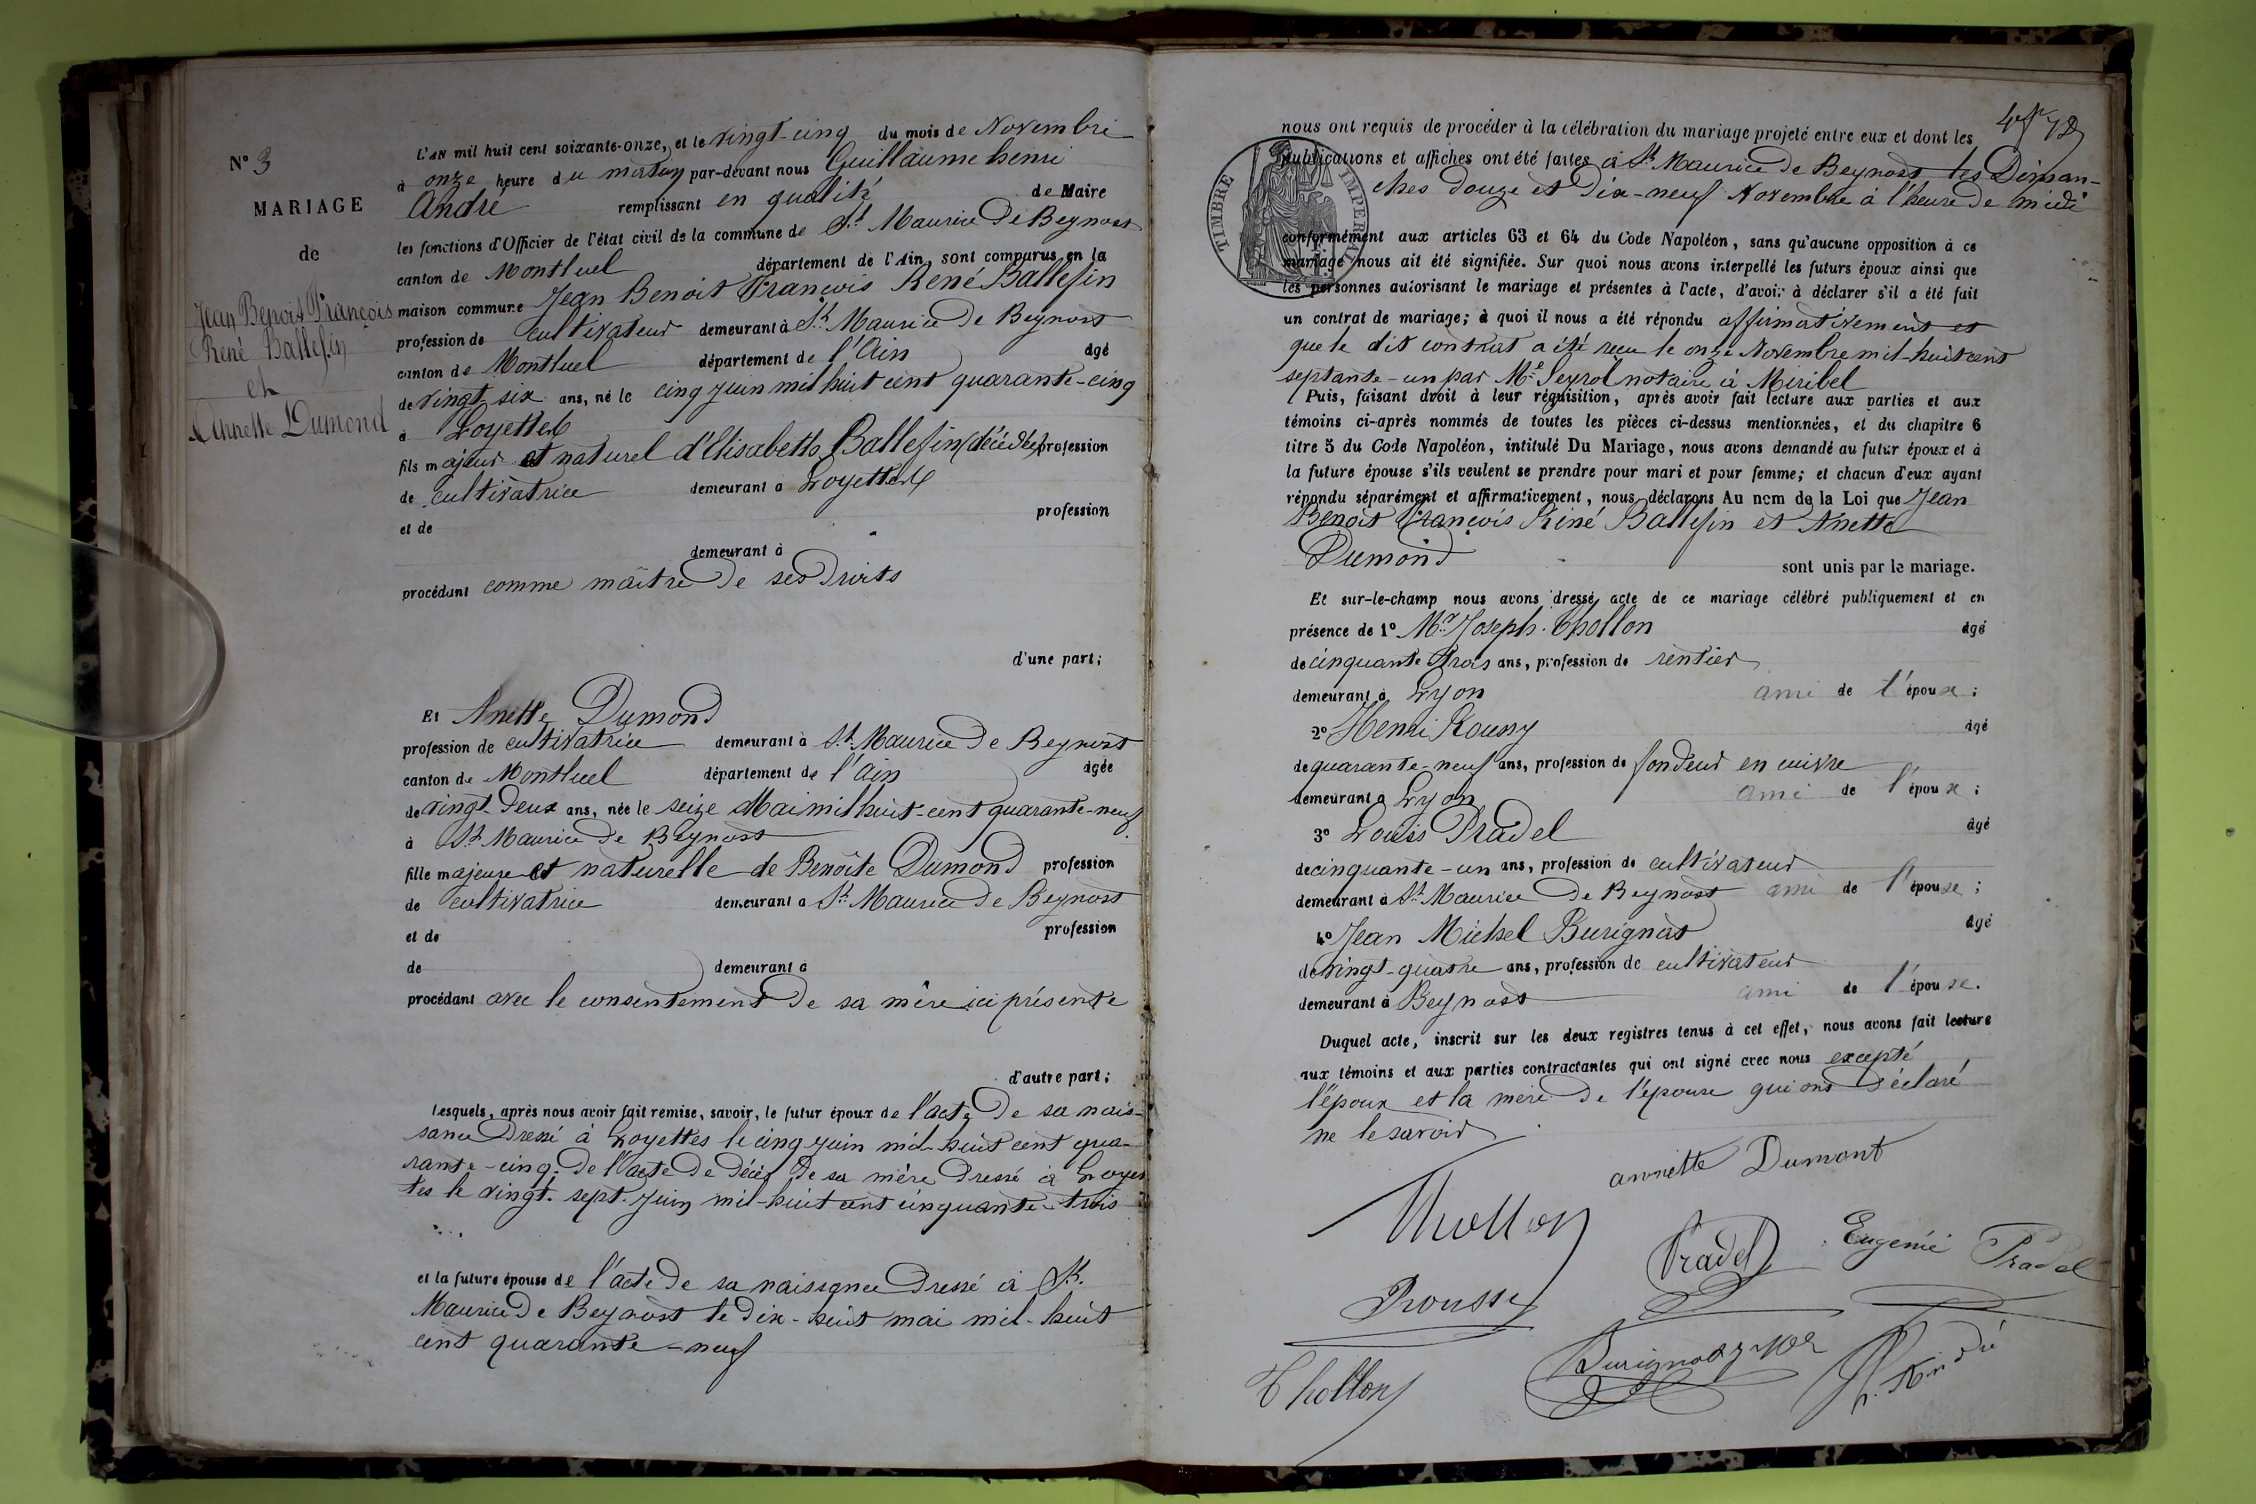 N° 3
MARIAGE
de
Jean Benoit François
René Ballefin
et
Annette Dumond
L'AN mil huit cent soixante-onze, et le vingt-cinq du mois de Novembre
à onze heure du matin par-devant nous Guillaume henri
André remplissant en qualité de Maire
les fonctions d'Officier de l'état civil de la commune de St Maurice de Beynost
canton de Montluel département de l'Ain, sont comparus en la
maison commune Jean Benoit François René Ballefin
profession de cultivateur demeurant à St Maurice de Beynost
canton de Montluel département de l'Ain âgé
de vingt-six ans, né le cinq juin mil huit cent quarante-cinq
à Loyettes
fils majeur et naturel d'Elisabeth Ballefin (décédée) profession
de cultivatrice demeurant à Loyettes
et de profession
demeurant à
procédant comme maître de ses droits
d'une part;
Et Anette Dumond
profession de cultivatrice demeurant à St Maurice de Beynost
canton de Montluel département de l'Ain âgée
de vingt-deux ans, née le seize Mai mil huit-cent quarante-neuf
à St Maurice de Beynost
fille majeure et naturelle de Benoîte Dumond profession
de cultivatrice demeurant à St Maurice de Beynost
et de profession
de demeurant à
procédant avec le consentement de sa mère ici présente
d'autre part;
Lesquels, après nous avoir fait remise, savoir, le futur époux de l'acte de sa nais-
sance dressé à Loyettes le cinq juin mil-huit cent qua-
rante-cinq. de l'acte de décès de sa mère dressé à Loyet
tes le vingt-sept juin mil-huit cent cinquante-trois
et la future épouse de l'acte de sa naissance dressé à St
Maurice de Beynost le dix-huit mai mil-huit
cent quarante-neuf
nous ont requis de procéder à la célébration du mariage projeté entre eux et dont les
publications et affiches ont été faites à St Maurice de Beynost les Diman-
ches douze et dix-neuf Novembre à l'heure de midi
TIMBRE IMPERIAL
conformément aux articles 63 et 64 du Code Napoléon, sans qu'aucune opposition à ce
mariage nous ait été signifiée. Sur quoi nous avons interpellé les futurs époux ainsi que
les personnes autorisant le mariage et présentes à l'acte, d'avoir à déclarer s'il a été fait
un contrat de mariage; à quoi il nous a été répondu affirmativement et
que le dit contrat a été recu le onze Novembre mil-huit cent
septante-un par Me Seyrol notaire à Miribel
Puis, faisant droit à leur réquisition, après avoir fait lecture aux parties et aux
témoins ci-après nommés de toutes les pièces ci-dessus mentionnées, et du chapitre 6
titre 5 du Code Napoléon, intitulé Du Mariage, nous avons demandé au futur époux et à
la future épouse s'ils veulent se prendre pour mari et pour femme; et chacun d'eux ayant
répondu séparément et affirmativement, nous déclarons Au nom de la Loi que Jean
Benoit François Réné Ballefin et Anette
Dumond
sont unis par le mariage.
Et sur-le-champ nous avons dressé acte de ce mariage célébré publiquement et en
présence de 1° Mr Joseph Thollon âgé
de cinquante trois ans, profession de rentier
demeurant à Lyon ami de l'épouse;
2° Henri Roussy âgé
de quarante-neuf ans, profession de fondeur en cuivre
demeurant à Lyon ami de l'époux;
3° Louis Pradel âgé
de cinquante-un ans, profession de cultivateur
demeurant à St Maurice de Beynost ami de l'épouse;
4° Jean Michel Burignat âgé
de vingt-quatre ans, profession de cultivateur
demeurant à Beynost ami de l'épouse.
Duquel acte, inscrit sur les deux registres tenus à cet effet, nous avons fait lecture
aux témoins et aux parties contractantes qui ont signé avec nous excepté
l'époux et la mère de l'épouse qui ont déclaré
ne le savoir
annette Dumont
Thollon
Pradel Eugenie Pradel
Prousse
Thollon